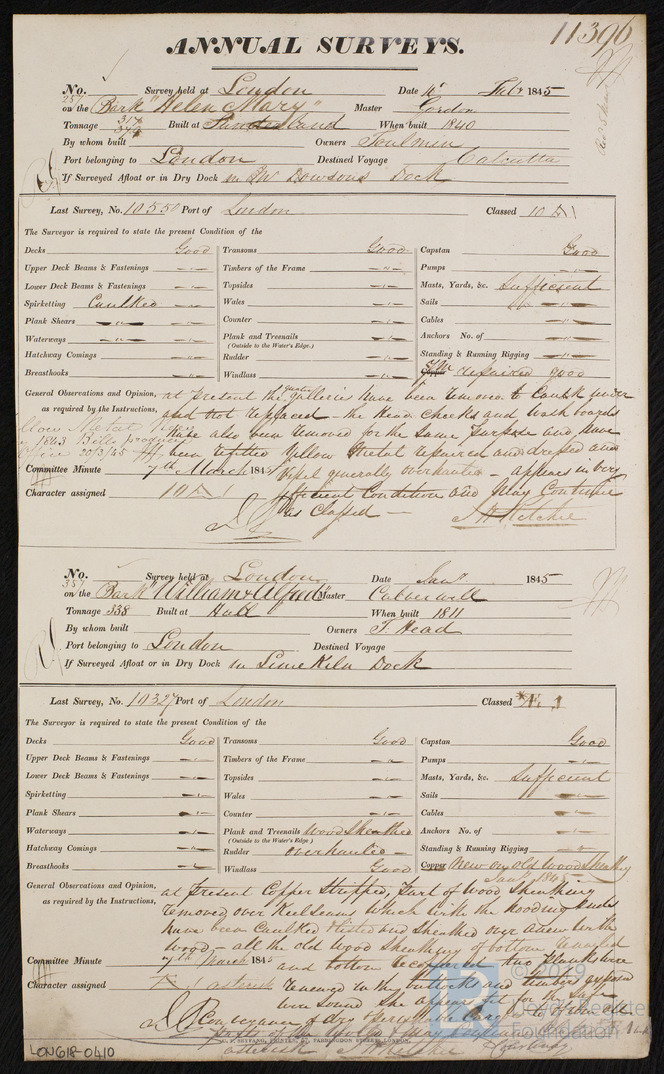 11396
ANNUAL SURVEYS.
No. Survey held at London Date 1845
on the Bark "Helen Mary" Master Gordon
Tonnage 317 Built at Sunderland When built 1840
By whom built Owners Toulmin
Port belonging to London Destined Voyage Calcutta
If Surveyed Afloat or in Dry Dock in Dowsons Dock
Last Survey, No. 10550 Port of London Classed 10 A 1
The Surveyor is required to state the present Condition of the
Decks Good Transoms Good Capstan Good
Upper Deck Beams & Fastenings Timbers of the Frame Pumps
Lower Deck Beams & Fastenings Topsides Masts, Yards, &c. Sufficient
Spirketting Caulked Wales Sails
Plank Shears Counter Cables
Waterways Plank and Treenails Anchors No. of
(Outside to the Water's Edge.)
Hatchway Comings Rudder Standing & Running Rigging
Breasthooks Windlass repaired good
General Observations and Opinion, at present the quarter galleries have been removed to caulk under
as required by the Instructions, and not replaced - the Head Cheeks and Wash boards
have also been removed for the same purpose and have
been refitted Yellow Metal repaired and dressed and
Office 20/3/45
Committee Minute 7th March 1845 Vessel generally overhauled - appears in very
Character assigned 10 A 1 efficient Condition and May Continue
as Classed -
No. Survey held at London Date Jany 1845
on the Bark "William & Alfred" Master
Tonnage 338 Built at Hull When built 1811
By whom built Owners T. Head
Port belonging to London Destined Voyage
If Surveyed Afloat or in Dry Dock in Lime Kiln Dock
Last Survey, No. 10327 Port of London Classed 1
The Surveyor is required to state the present Condition of the
Decks Good Transoms Good Capstan Good
Upper Deck Beams & Fastenings Timbers of the Frame Pumps
Lower Deck Beams & Fastenings Topsides Masts, Yards, &c. Sufficient
Spirketting Wales Sails
Plank Shears Counter Cables
Waterways Plank and Treenails Wood Sheathed Anchors No. of
(Outside to the Water's Edge.)
Hatchway Comings Rudder overhauled Standing & Running Rigging
Breasthooks Windlass Good Copper New on Old Wood Sheathg
Jany 1845
General Observations and Opinion, at present Copper Stripped, Part of Wood Sheathing
as required by the Instructions, removed over Keel Seams which with the hooding ends
have been Caulked and Sheathed over anew with
wood - all the old Wood Sheathing of bottom
Committee Minute 7th March 1845 and bottom recoppered two Planks were
Character assigned asterisk renewed in the buttocks and timbers exposed
were sound She appears fit for the safe
Conveyance of dry
asterisk
SEYFANG, PRINTER, 57, FARRINGDON STREET, LONDON.
LON618-0410
© 2019
Lloyd's Register
Foundation